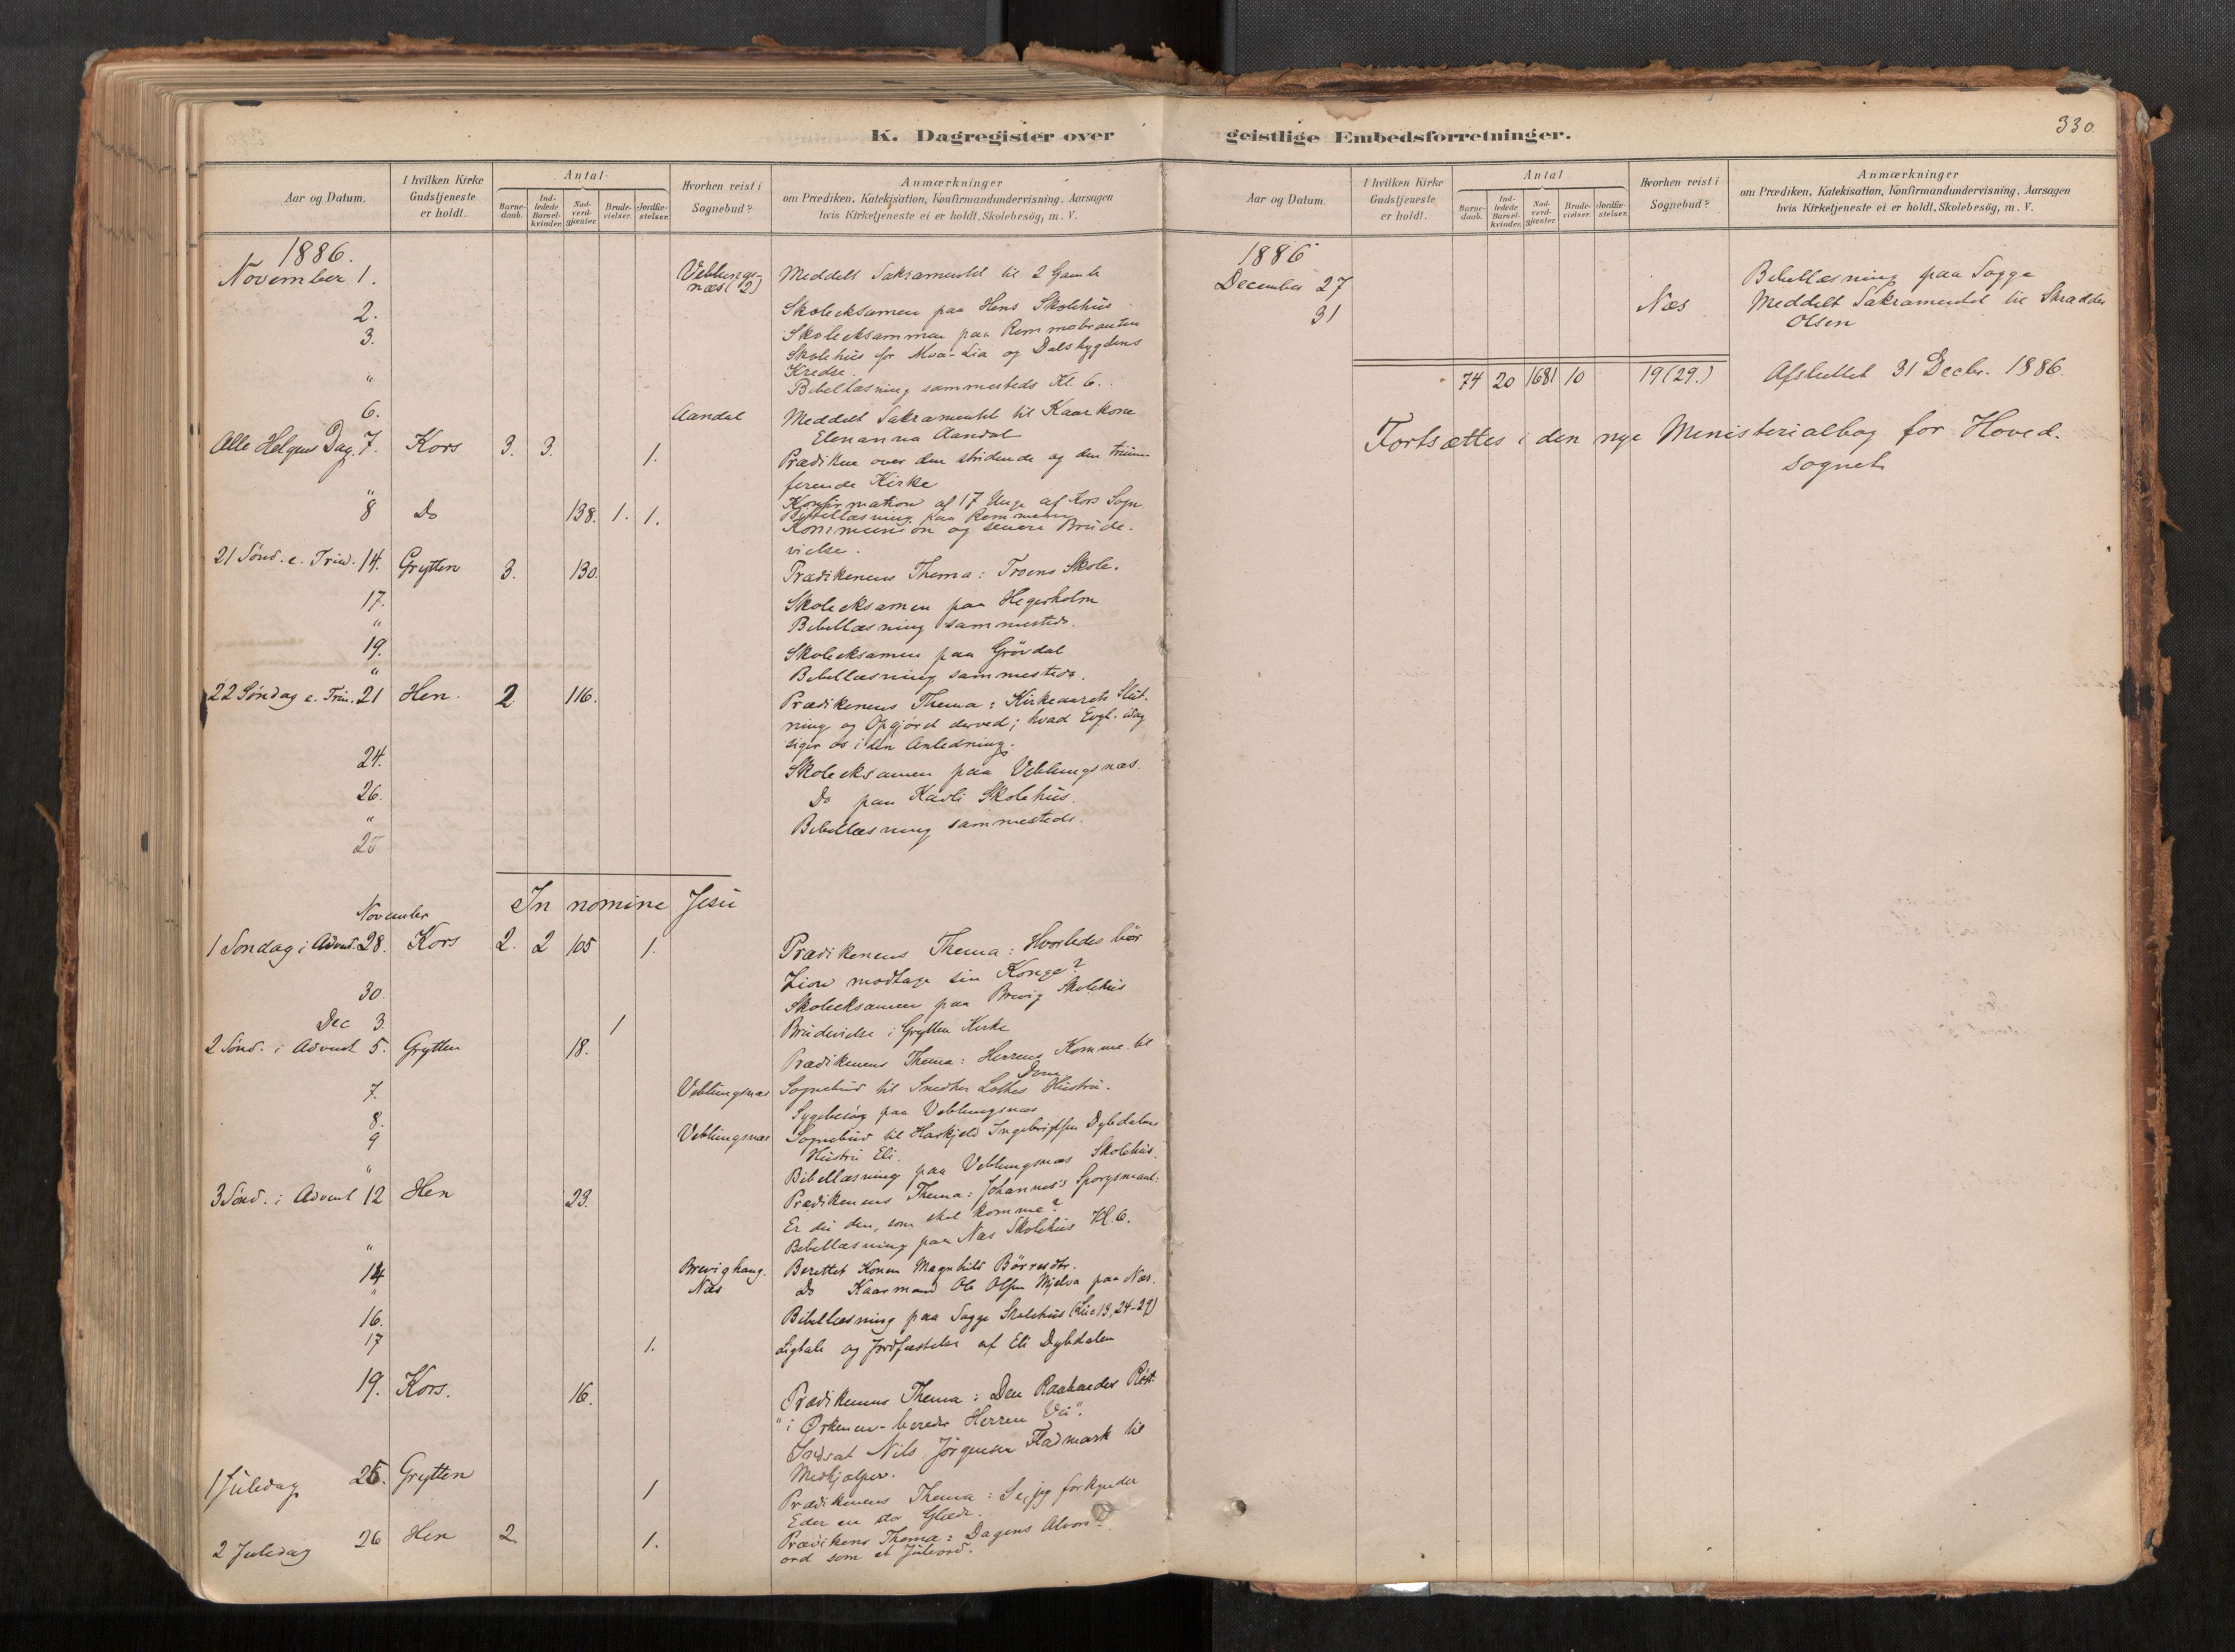 K. Dagregister over
Aar og Datum.
I hvilken Kirke Gudstjeneste er holdt.
Antal
Barne-daab.
Ind-ledede Barsel-kvinder.
Nad-verd-gjæster.
Brude-vielser.
Jordfæ-stelser.
Hvorhen reist i Sognebud?
Anmærkninger
om Prædiken, Katekisation, Konfirmandundervisning, Aarsagen
hvis Kirketjeneste ei er holdt, Skolebesög, m. V.
1886.
November 1. Veblungsnæs (2) Meddelt Sakramentet til 2 Gamle
2. Skoleeksamen paa Hens Skolehus
3. Skoleeksammen paa Remmebrauten
Skolehus for Moa-Lia og Dalsbygdens
Kredse.
" Bibellæsning sammesteds Kl. 6.
6. Aandal Meddelt Sakramentet til Kaarkone
Elenanna Aandal
Alle Helgens Dag. 7. Kors 3. 3. 1. Prædiken over den stridende og den trium
ferende Kirke
Konfirmation af 17 Unge af Kors Sogn
" Bibellæsning paa Remmem
8 Do 138. 1. 1. Kommunion og senere Brude-
vielse.
21 Sönd. e. Trin. 14. Grytten 3. 130. Prædikenens Thema: Troens Skole.
17. Skoleeksamen paa Hegerholm
" Bibellæsning sammesteds.
19. Skoleeksamen paa Grövdal
" Bibellæsning sammesteds.
22 Söndag e. Trin. 21 Hen. 2 116. Prædikenens Thema: Kirkeaarets Slut-
ning og Opgjöret derved; hvad Evgl. idag
siger os i den Anledning.
24. Skoleeksamen paa Veblungsnæs
26. Do paa Kavli Skolehus.
" Bibellæsning sammesteds.
25
In nomine Jesu
November
1 Söndag i Advent. 28. Kors 2. 2 105 1. Prædikenens Thema: Hvorledes bör
Zion modtage sin Konge?
30. Skoleeksamen paa Brevig Skolehus
Dec 3. 1 Brudevielse i Grytten Kirke
2 Sönd. i Advent 5. Grytten 18. Prædikenens Thema: Herrens Komme til
Dom
7. Veblungsnæs Sognebud til Snedker Hustru.
8. Sygebesög paa Veblungsnæs
9 Veblungsnæs Sognebud til Ingebrigtsen Dybdalens
Hustru Eli.
" Bibellæsning paa Veblungsnæs Skolehus.
3 Sönd. i Advent 12 Hen 23. Prædikenens Thema: Johannes's Spörgsmaal:
Er du den, som skal komme?
" Bibellæsning paa Næs Skolehus Kl. 6.
14 Brevighaug. Berettet Konen Magnhild Börresdtr.
" Næs Do Kaarmand Ole Olsen Mjelva paa Næs.
16. Bibellæsning paa Sogge Skolehus (Luc 13, 24-29)
17 1. Ligtale og Jordfæstelse af Eli Dybdalen
19. Kors. 16. Prædikenens Thema: Den Raabendes Röst
"i Ørkenen-bereder Herren Vei".
Indsat Nils Jörgensen Fladmark til
Medhjælper.
1 Juledag 25. Grytten 1 Prædikenens Thema: Se, jeg forkynder
Eder en stor Glæde.
2 Juledag 26 Hen 2. 1. Prædikens Thema: Dagens Alvors-
ord som et Juleord.
geistlige Embedsforretninger.
330.
Aar og Datum.
I hvilken Kirke Gudstjeneste er holdt.
Antal
Barne-daab.
Ind-ledede Barsel-kvinder.
Nad-verd-gjæster.
Brude-vielser.
Jordfæ-stelser.
Hvorhen reist i Sognebud?
Anmærkninger
om Prædiken, Katekisation, Konfirmandundervisning, Aarsagen
hvis Kirketjeneste ei er holdt, Skolebesög, m. V.
1886
December 27 Bibellæsning paa Sogge
31 Næs Meddelt Sakramentet til Skrædder
Olsen
74 20 1681 10 19 (29.) Afsluttet 31 Decbr. 1886.
Fortsættes i den nye Ministerialbog for Hoved-
sognet